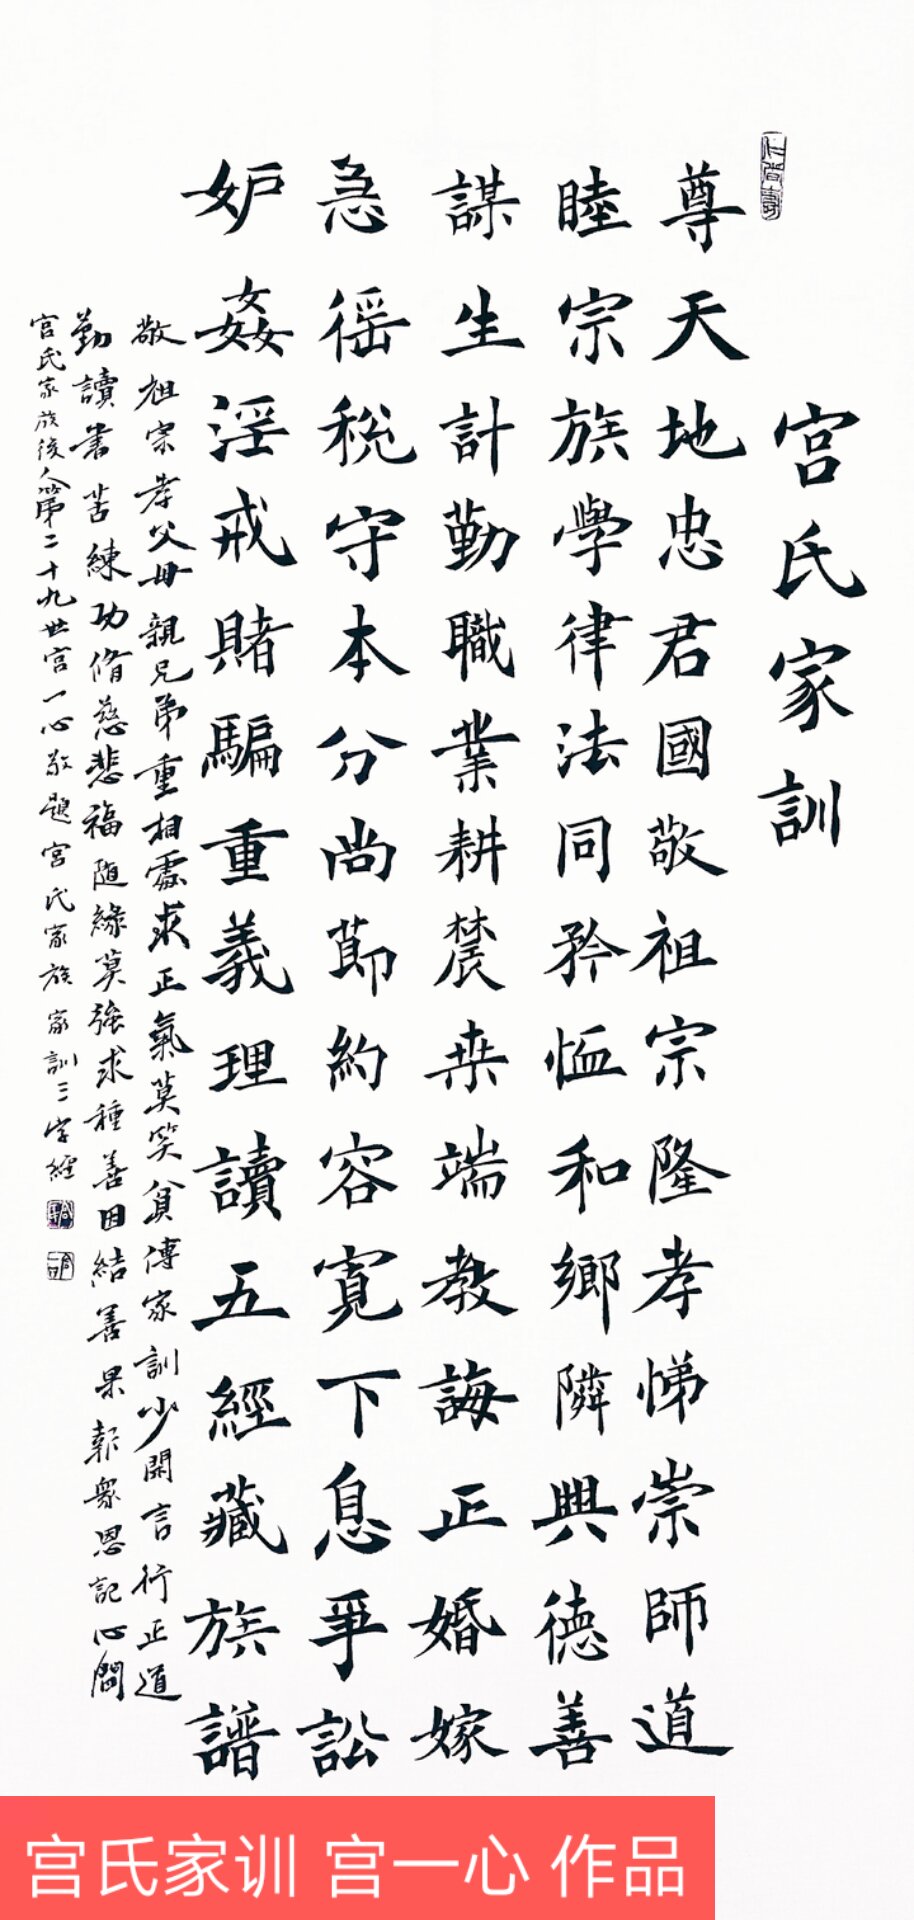 宫氏家訓
尊天地忠君國敬祖宗隆孝悌崇師道
睦宗族學律法同矜恤和鄉隣興德善
謀生計勤職業耕農桒端教誨正婚嫁
急徭稅守本分尚節約容寬下息爭訟
妒姦淫戒賭騙重義理讀五經藏族譜
敬祖宗孝父母親兄弟重相處求正氣莫笑貧傳家訓少閑言行正道
勤讀書苦練功脩慈悲福随緣莫強求種善因結善果報衆恩記心間
宫氏家族後人第二十九世宫一心敬題宫氏家族家訓三字經
宫氏家训 宫一心 作品